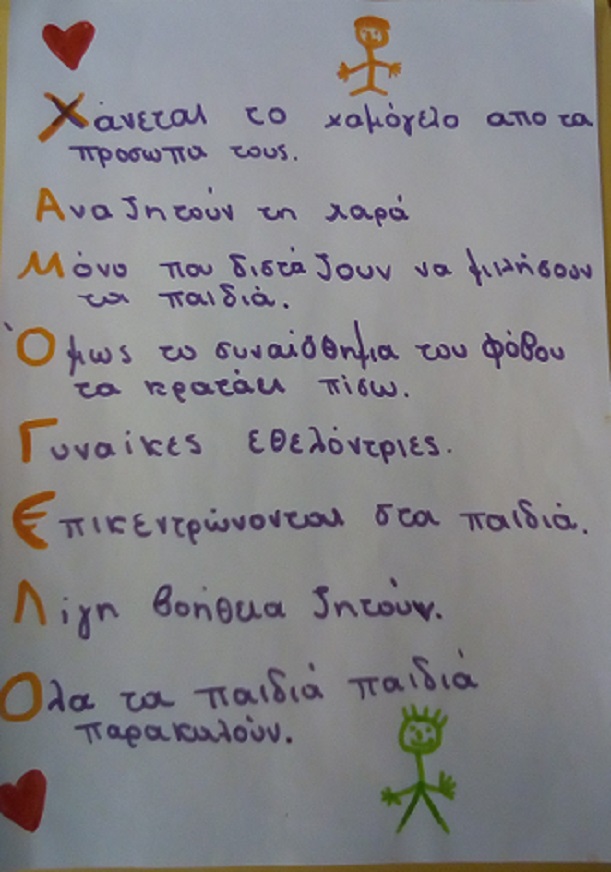 Χάνεται το χαμόγελο απο τα
προσωπα τους.
Αναζητούν τη χαρά
Μόνο που διστάζουν να μιλήσουν
τα παιδιά.
Όμως το συναίσθημα του φόβου
τα κρατάει πίσω.
Γυναίκες εθελόντριες.
Επικεντρώνονται στα παιδιά.
Λίγη βοήθεια ζητούν.
Ολα τα παιδιά παιδιά
παρακαλούν.